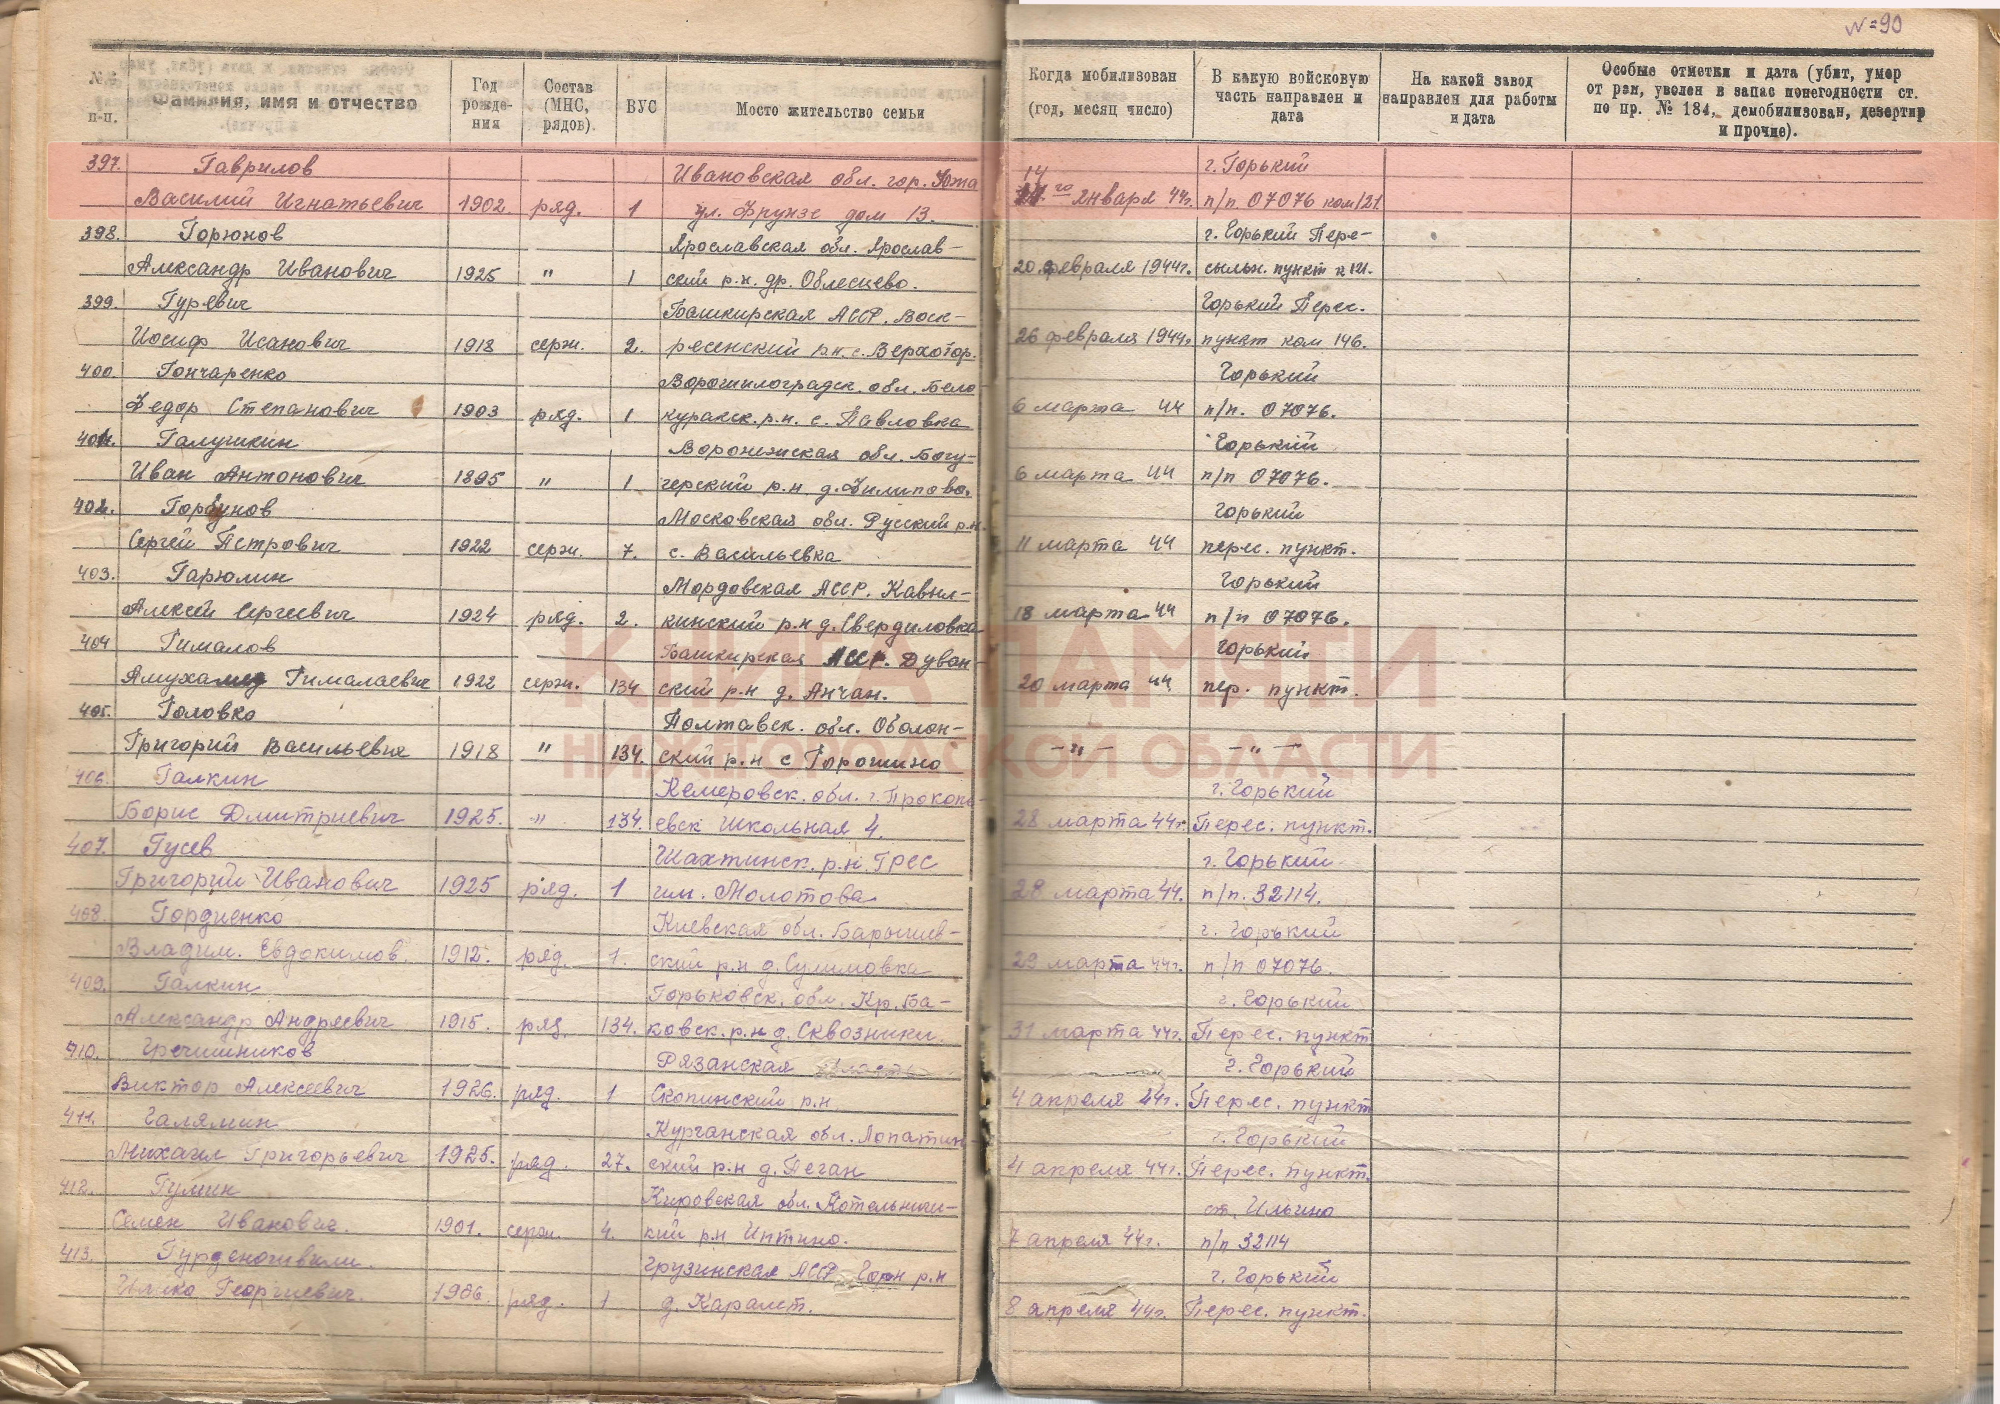 № 90
№№ п-п.
Фамилия, имя и отчество
Год рожде-ния
Состав (МНС, рядов).
ВУС
Место жительство семьи
Когда мобилизован (год, месяц число)
В какую войсковую часть направлен и дата
На какой завод направлен для работы и дата
Особые отметки и дата (убит, умер от ран, уволен в запас понегодности ст. по пр. № 184, демобилизован, дезертир и прочие).
397. Гаврилов Ивановская обл. гор. Южа г. Горький
Василий Игнатьевич 1902. ряд. 1 ул. Фрунзе дом 13. 14 го января 44г. п/п 07076 ком 121.
398. Горюнов Ярославская обл. Ярослав- г. Горький Пере-
Александр Иванович 1925 " 1 ский р.н. др. Облесцево. 20 февраля 1944г. сыльн. пункт к 121.
399. Гуревич Башкирская АССР. Воск- Горький Перес.
Иосиф Исакович 1918 серж. 2. ресенский р.н. с. Верхотор. 26 февраля 1944г. пункт ком 146.
400. Гончаренко Ворошилоградск. обл. Бело- Горький
Федор Степанович 1903 ряд. 1 куракск. р.н. с. Павловка 6 марта 44 п/п. 07076.
401. Галушкин Воронежская обл. Богу- Горький
Иван Антонович 1895 " 1 черский р.н д. Филипово. 6 марта 44 п/п 07076.
402. Горбунов Московская обл. Русский р.н. Горький
Сергей Петрович 1922 серж. 7. с. Васильевка 11 марта 44 перес. пункт.
403. Гарюлин Мордовская АССР. Кавыл- Горький
Алексей Сергеевич 1924 ряд. 2. кинский р.н д. Свердиловка 18 марта 44 п/п 07076.
404 Гималов Башкирская АССР. Дуван- Горький
Амухамед Гималаевич 1922 серж. 134 ский р-н д. Анчан. 20 марта 44 пер. пункт.
405. Головко Полтавск. обл. Оболон-
Григорий Васильевич 1918 " 134. ский р.н с Горошино -"- -"-
406. Галкин Кемеровск. обл. г. Прокопь- г. Горький
Борис Дмитриевич 1925. " 134. евск Школьная 4. 28 марта 44г. Перес. пункт.
407. Гусев Шахтинск. р.н. ГРЕС г. Горький
Григорий Иванович 1925 ряд. 1 им. Молотова 28 марта 44. п/п. 32114.
408. Гордиенко Киевская обл. Барышев- г. Горький
Владим. Евдокимов. 1912. ряд. 1. ский р.н д. Сулимовка 29 марта 44г. п/п 07076.
409. Галкин Горьковск. обл. Кр. Ба- г. Горький
Александр Андреевич 1915. ряд. 134. ковск. р.н д. Сквозники. 31 марта 44г. Перес. пункт
410. Гречишников Рязанская область г. Горький
Виктор Алексеевич 1926. ряд. 1 Скопинский р.н 4 апреля 44г. Перес. пункт
411. Галямин Курганская обл. Лопатин- г. Горький
Михаил Григорьевич 1925. ряд. 27. ский р.н д. Пеган 4 апреля 44г. Перес. пункт.
412. Гулин Кировская обл. Котельнич- ст. Ильино
Семен Иванович. 1901. серж. 4. кий р.н Интино. 7 апреля 44г. п/п 32114
413. Грузинская АССР Гори р.н г. Горький
Илико Георгиевич. 1906. ряд. 1 д. Каралет. 8 апреля 44г. Перес. пункт.
КНИГА ПАМЯТИ
НИЖЕГОРОДСКОЙ ОБЛАСТИ